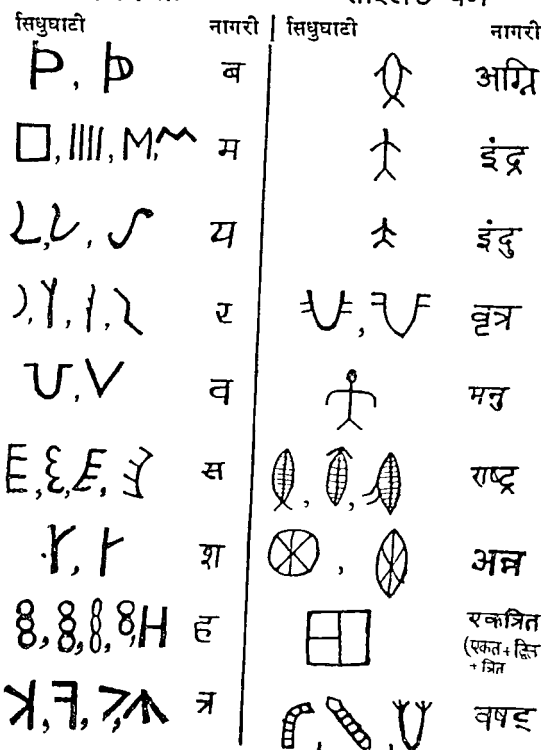 सिंधुघाटी नागरी | सिंधुघाटी नागरी
ब अग्नि
म इंद्र
य इंदु
र वृत्र
व मनु
स राष्ट्र
श अन्न
ह एकत्रित
(एकत + द्वित
+ त्रित
त्र वषट्